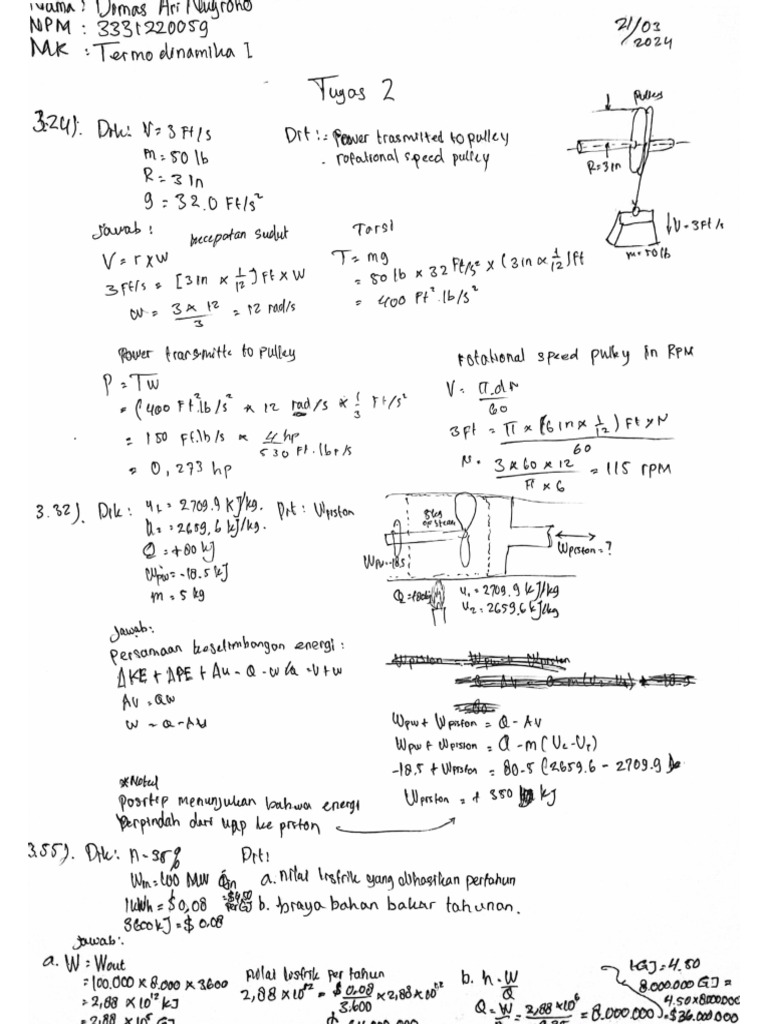 Nama : Dimas Ari Nugroho
NPM : 3331220059
MK : Termodinamika I
21/03
2024
Tugas 2
3.24). Dik: V = 3 Ft/s
m = 50 lb
R = 3 in
g = 32.0 Ft/s²
Dit : - Power trasmitted to pulley
. rotational speed pulley
pulley
R = 3 in
V = 3 Ft/s
m = 50 lb
Jawab :
kecepatan sudut
V = r x W
3 Ft/s = [3 in x 1/12] Ft x W
W = 3 x 12 / 3 = 12 rad/s
Torsi
T = mg
= 50 lb x 32 Ft/s² x (3 in x 1/12) ft
= 400 Ft² lb/s²
Power transmitte to pulley
P = TW
= (400 Ft² lb/s² x 12 rad/s x 1/3 Ft/s²
= 150 Ft.lb/s x 4 hp / 530 Ft.lbf/s
= 0,273 hp
rotational speed pulley in RPM
V = π.dN / 60
3 Ft = π x (6 in x 1/12) Ft x N / 60
N = 3 x 60 x 12 / π x 6 = 115 rpm
3.32). Dik : u₁ = 2709.9 kJ/kg.
u₂ = 2659,6 kJ/kg.
Q = +80 kJ
Wpw = -18.5 kJ
m = 5 kg
Dit : Wpiston
5kg
of steam
Wpw = -18.5
Wpiston = ?
u₁ = 2709.9 kJ/kg
u₂ = 2659.6 kJ/kg
Jawab:
Persamaan keseimbangan energi :
ΔKE + ΔPE + Δu = Q - W
ΔU = QW
W = Q - ΔU
Wpw + Wpiston = Q - ΔV
Wpw + Wpiston = Q - m (U₂ - U₁)
-18.5 + Wpiston = 80-5 (2659.6 - 2709.9)
Wpiston = + 350 kJ
*Note!
Positip menunjukan bahwa energi
Berpindah dari uap ke piston
3.55). Dik : n = 35%
1kWh = $0,08
3600 kJ = $0.08
= $4.50
per GJ
Dit:
a. nilai listrik yang dihasilkan pertahun
b. biaya bahan bakar tahunan.
Jawab:
a. W = Wout
= 100.000 x 8.000 x 3600
= 2,88 x 10¹² kJ
nilai listrik per tahun
2,88 x 10¹² = $0,08 / 3.600 x 2,88 x 10¹²
b. n = W/Q
1GJ = 4.50
8.000.000 GJ =
4.50 x 8000000
= $36.000.000